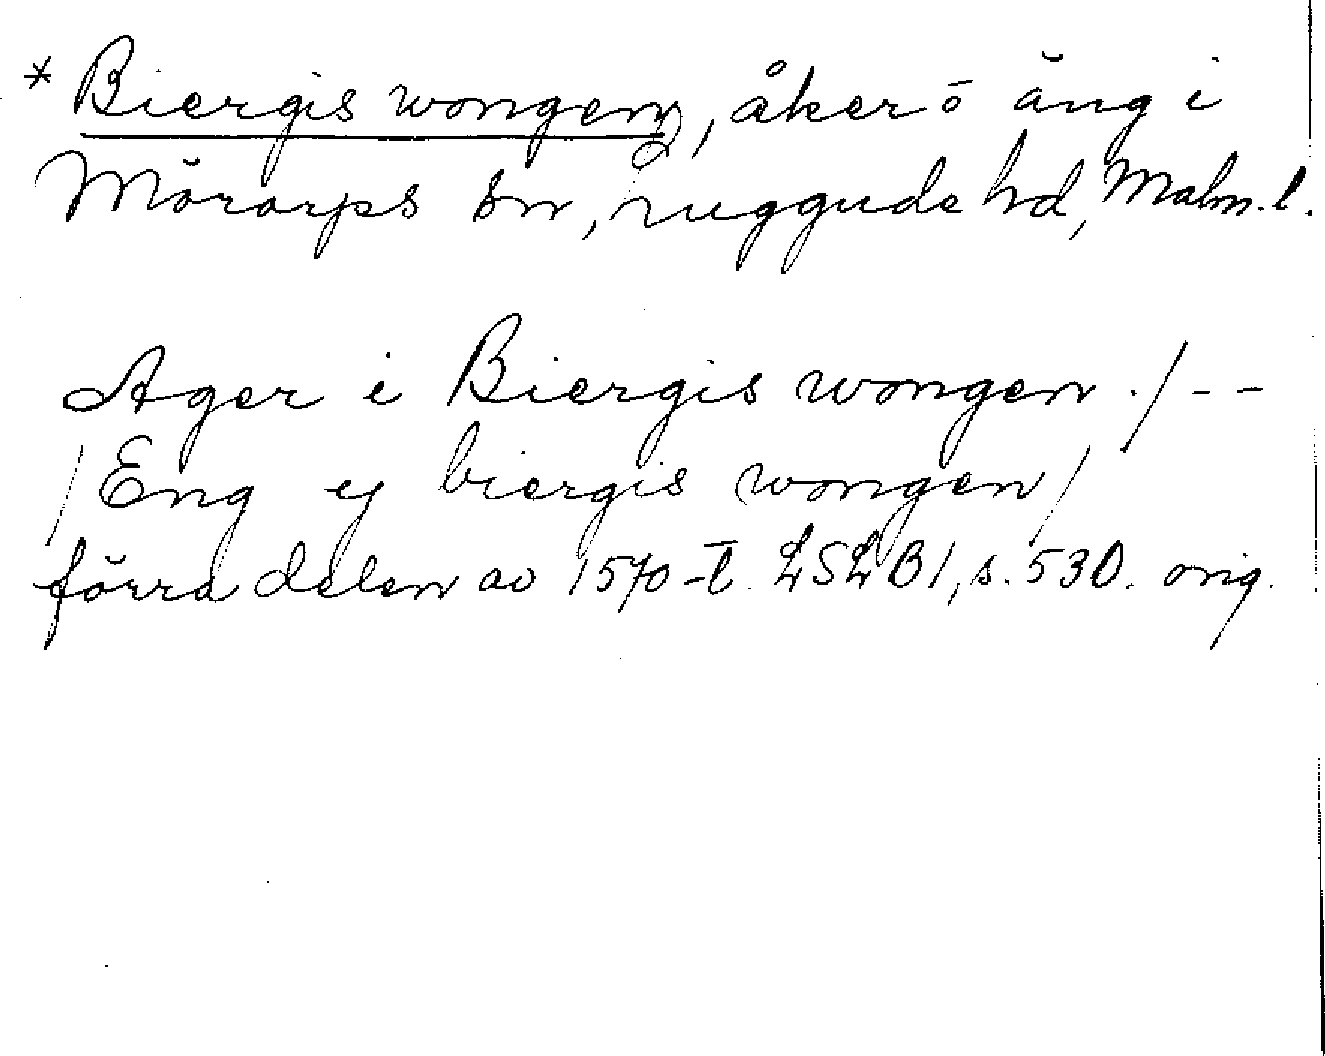 * Biergis wongen, åker o äng i
Mörarps sn, Luggude hd, Malm. l.
Ager i Biergis wongen ./ - -
/ Eng ej biergis wongen /
förra delen av 1570-t. LSLB 1, s. 530. orig.